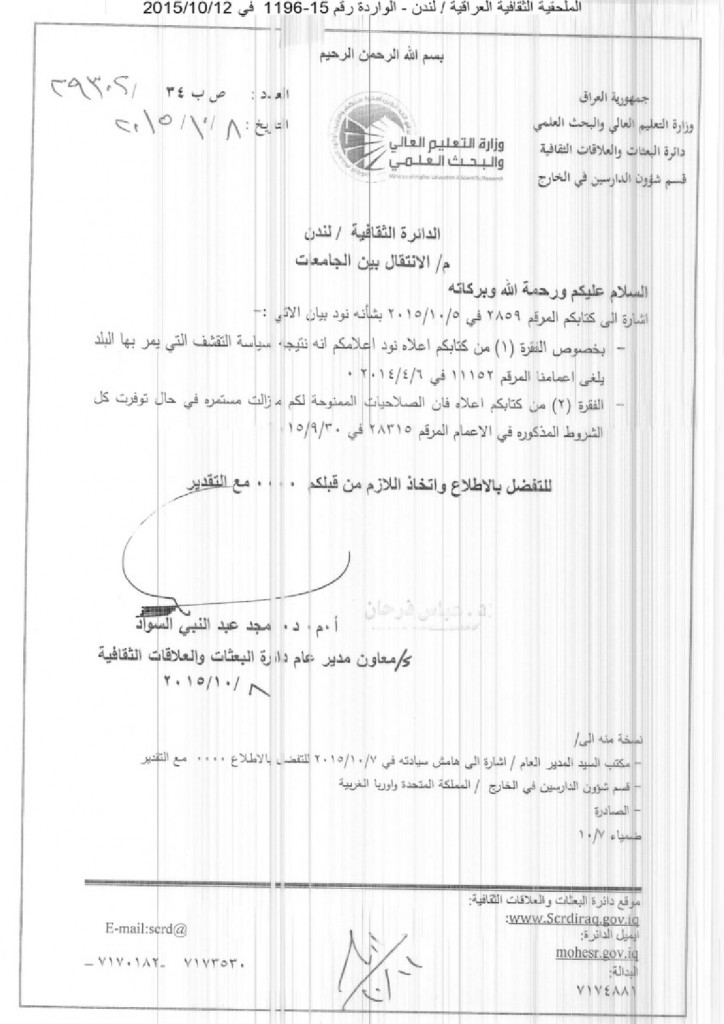 الملحقية الثقافية العراقية / لندن - الواردة رقم 15-1196 في 2015/10/12
بسم الله الرحمن الرحيم
جمهورية العراق
وزارة التعليم العالي والبحث العلمي
دائرة البعثات والعلاقات الثقافية
قسم شؤون الدارسين في الخارج
وزارة التعليم العالي
والبحث العلمي
العدد : ص ب ٣٤ /
التاريخ : ٨ /١٠/ ٢٠١٥
الدائرة الثقافية / لندن
م/ الانتقال بين الجامعات
السلام عليكم ورحمة الله وبركاته
اشارة الى كتابكم المرقم ٢٨٥٩ في ٢٠١٥/١٠/٥ بشأنه نود بيان الاتي :-
- بخصوص الفقرة (١) من كتابكم اعلاه نود اعلامكم انه نتيجة سياسة التقشف التي يمر بها البلد
يلغى اعمامنا المرقم ١١١٥٢ في ٢٠١٤/٤/٦ ٠
- الفقرة (٢) من كتابكم اعلاه فان الصلاحيات الممنوحة لكم مازالت مستمره في حال توفرت كل
الشروط المذكوره في الاعمام المرقم ٢٨٣١٥ في ٢٠١٥/٩/٣٠
للتفضل بالاطلاع واتخاذ اللازم من قبلكم ٠٠٠٠ مع التقدير
د. عباس فرحان
أ٠م٠د٠ مجد عبد النبي السواد
ع/معاون مدير عام دائرة البعثات والعلاقات الثقافية
٨ /٢٠١٥/١٠
نسخة منه الى/
- مكتب السيد المدير العام / اشارة الى هامش سيادته في ٢٠١٥/١٠/٧ للتفضل بالاطلاع ٠٠٠٠ مع التقدير
- قسم شؤون الدارسين في الخارج / المملكة المتحدة واوربا الغربية
- الصادرة
ضمياء ١٠/٧
موقع دائرة البعثات والعلاقات الثقافية:
www.Scrdiraq.gov.iq:
ايميل الدائرة:
E-mail:scrd@
mohesr.gov.iq
البدالة:
٧١٧٤٨٨١
٧١٧٣٥٣٠ -٧١٧٠١٨٢ -